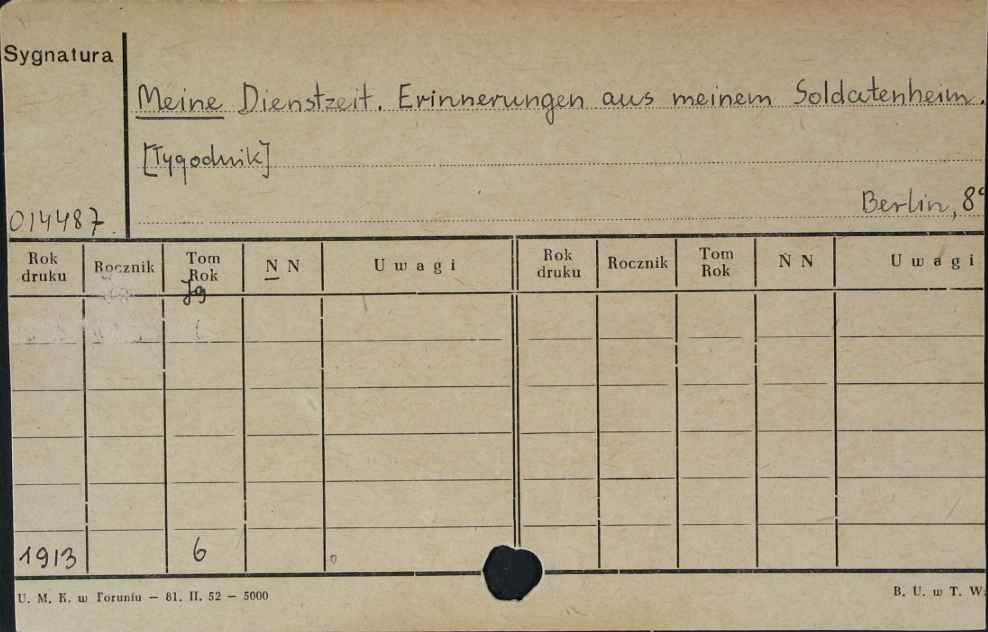 Sygnatura
Meine Dienstzeit. Erinnerungen aus meinem Soldatenheim.
[Tygodnik]
Berlin, 8°
014487.
Rok druku Rocznik Tom Rok N N Uwagi Rok druku Rocznik Tom Rok N N Uwagi
Jg
1913 6
U. M. K. w Toruniu – 81. II. 52 – 5000 B. U. w T. W